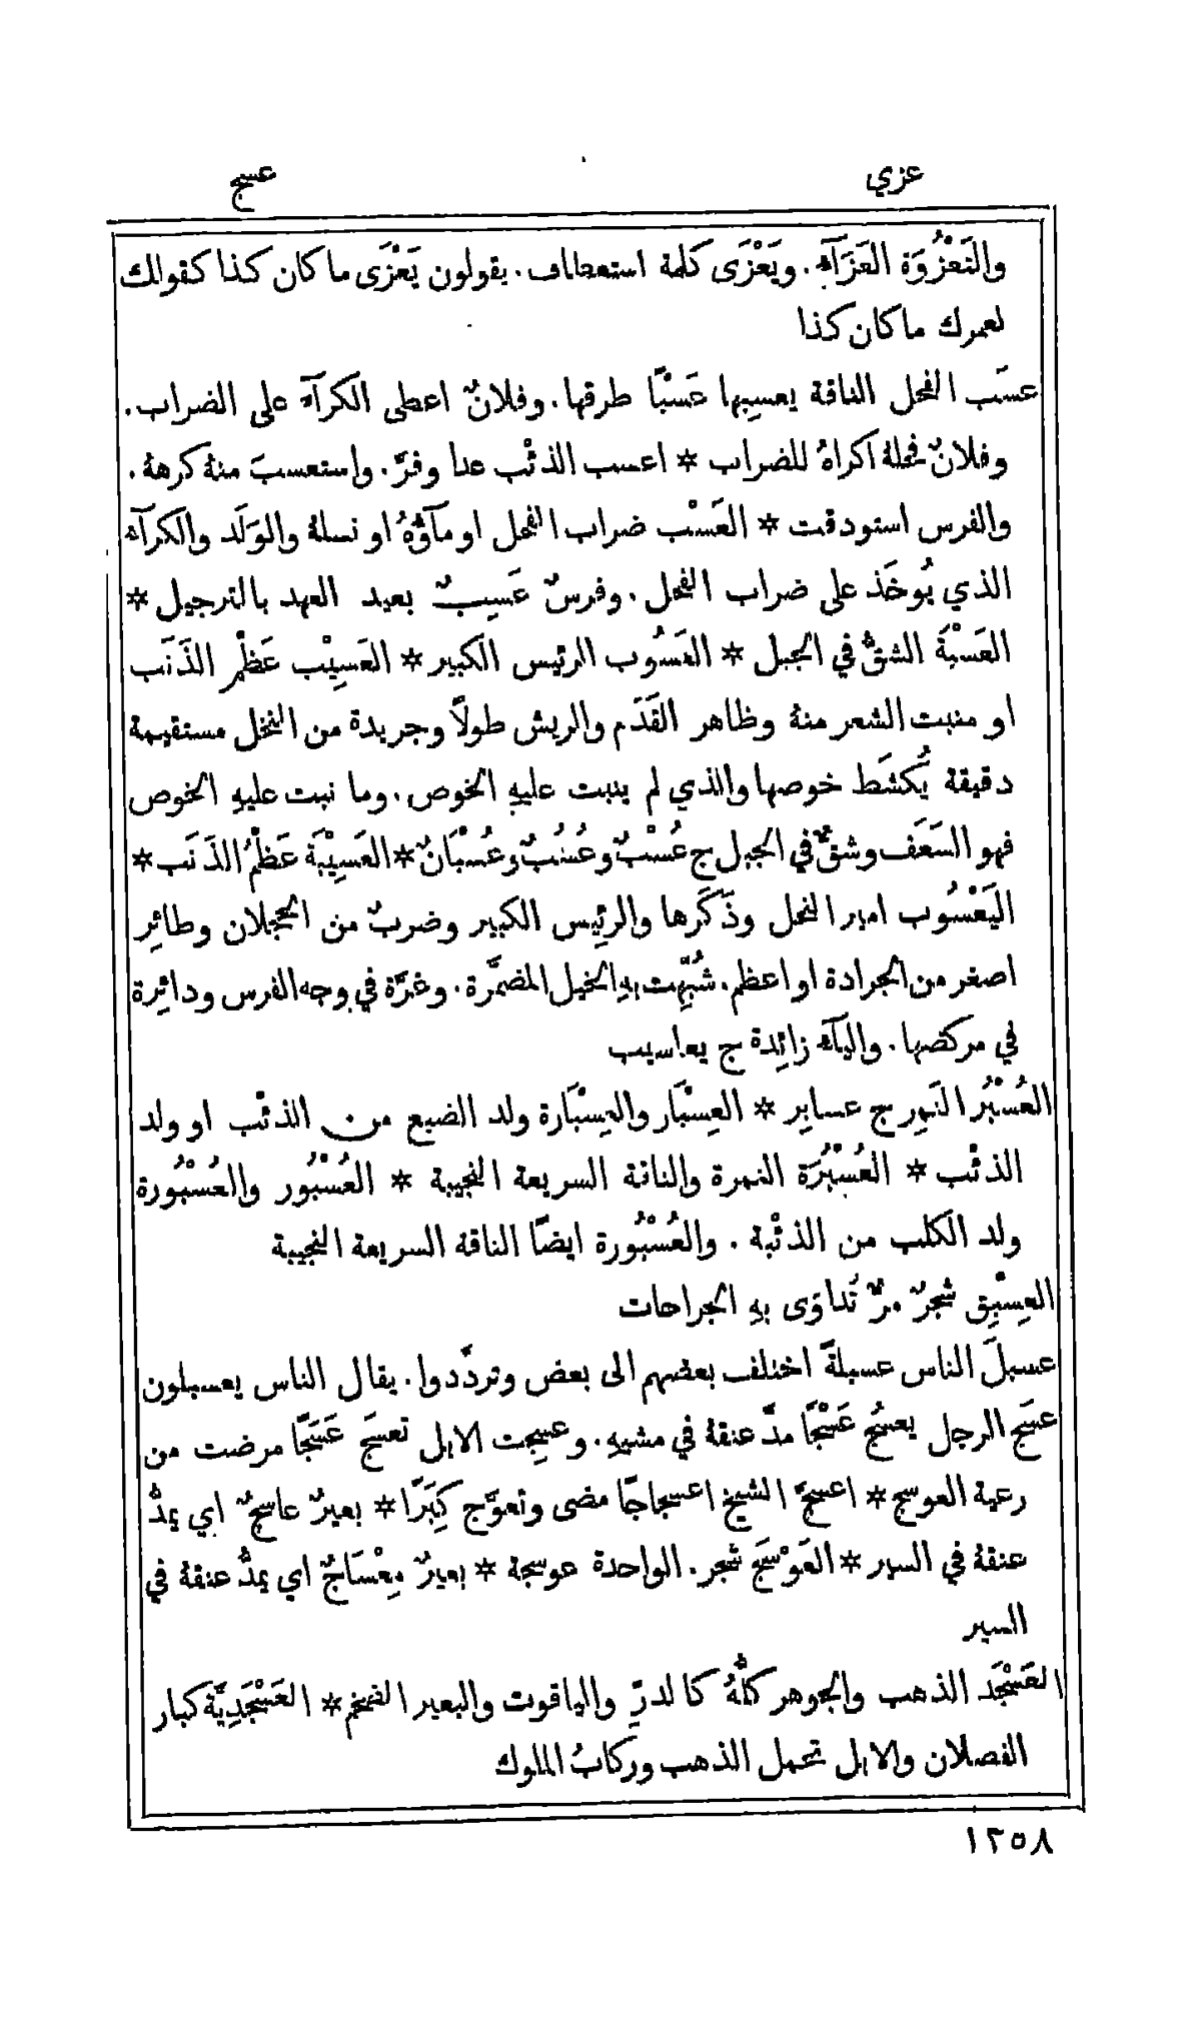 عزي
عسج
والتَعْزُوَة العَزَآء. ويَعْزَى كلمة استعطاف. يقولون يَعْزَى ما كان كذا كقولك
لعمرك ما كان كذا
عسَب الفحل الناقة يعسِبها عَسْبًا طرقها. وفلانٌ اعطى الكرآء على الضراب.
وفلانٌ فحلهُ اكراهُ للضراب * اعسب الذئْب عدا وفرَّ. واستعسبَ منهُ كرههُ.
والفرس استودقت * العَسْب ضراب الفحل او مآؤُهُ او نسلهُ والوَلَد والكرآء
الذي يُوخَذ على ضراب الفحل. وفرسٌ عَسِيبٌ بعيد العهد بالترجيل *
العَسْبَة الشقُّ في الجبل * العَسُوب الرئيس الكبير * العَسِيْب عَظْم الذَنَب
او منبت الشعر منهُ وظاهر القَدَم والريش طولًا وجريدة من النخل مستقيمة
دقيقة يُكشَط خوصها والذي لم ينبت عليهِ الخوص. وما نبت عليهِ الخوص
فهو السَعَف وشقٌّ في الجبل ج عُسْبٌ وعُسُبٌ وعُسْبَانٌ * العَسِيْبَة عَظْمُ الذَنَب *
اليَعْسُوب امير النحل وذَكَرها والرئِيس الكبير وضربٌ من الحجلان وطائِر
اصغر من الجرادة او اعظم. شُبِّهت بهِ الخيل المضمَّرة. وغرَّة في وجه الفرس ودائِرة
في مركضها. واليآء زائِدة ج يعاسيب
العُسْبُر النَمِر ج عسابِر * العِسْبَار والعِسْبَارة ولد الضبع من الذئْب او ولد
الذئْب * العُسْبُرَة النمرة والناقة السريعة النجيبة * العُسْبُور والعُسْبُورة
ولد الكلب من الذئْبة. والعُسْبُورة ايضًا الناقة السريعة النجيبة
العِسْبِق شجرٌ مرٌّ تُداوَى بهِ الجراحات
عسبلَ الناس عسبلةً اختلف بعضهم الى بعض وتردَّدوا. يقال الناس يعسبلون
عسَج الرجل يعسُج عَسْجًا مدَّ عنقهُ في مشيهِ. وعسِجت الابل تعسَج عَسَجًا مرضت من
رعية العوسج * اعسجَّ الشيخ اعسجاجًا مضى وتعوَّج كِبَرًا * بعيرٌ عاسجٌ اي يمدُّ
عنقهُ في السير * العَوْسَج شجر. الواحدة عوسجة * بعيرٌ مِعْسَاجٌ اي يمدُّ عنقهُ في
السير
العَسْجَد الذهب والجوهر كلُّهُ كالدرِّ والياقوت والبعير الضخم * العَسْجَدِيَّة كبار
الفصلان والابل تحمل الذهب وركابُ الملوك
١٢٥٨